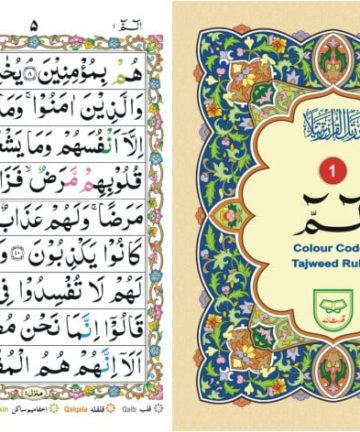 ۵
الٓمّٓ ۱
هُمۡ بِمُؤۡمِنِيۡنَ ۘ‏ ﴿۸﴾
وَالَّذِيۡنَ اٰمَنُوۡا ۚ وَمَا
اِلَّاۤ اَنۡفُسَهُمۡ وَمَا
قُلُوۡبِهِمۡ مَّرَضٌ ۙ
مَرَضًا ۚ وَلَهُمۡ عَذَابٌ
كَانُوۡا يَكۡذِبُوۡنَ ﴿۱۰﴾
لَهُمۡ لَا تُفۡسِدُوۡا فِى
قَالُوۡاۤ اِنَّمَا نَحۡنُ
اَلَاۤ اِنَّهُمۡ هُمُ
منزل ۱
قلب Qalb قلقلہ Qalqala اخفا میم ساکن
1
الٓمّٓ
Colour Code
Tajweed
قدرت اللہ